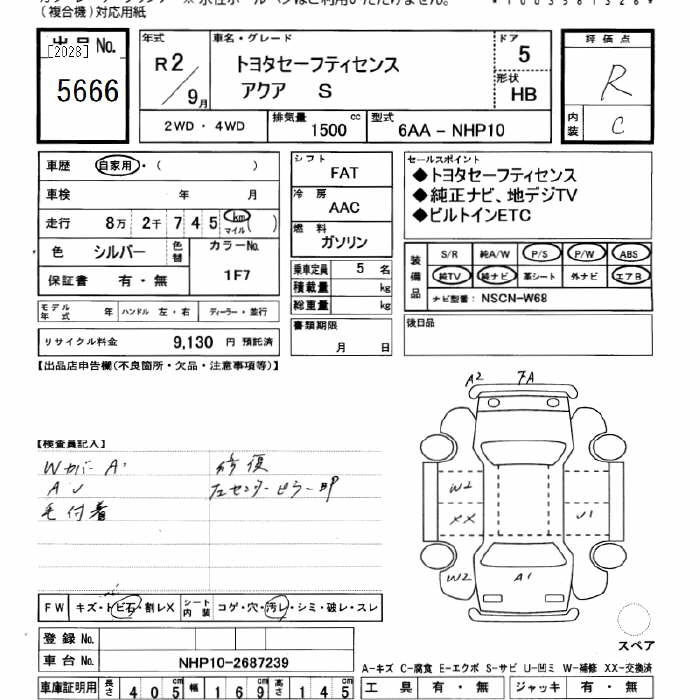 (複合機)対応用紙
出品No. [2028] 5666
年式 R2/9月
車名・グレード トヨタセーフティセンス
アクア S
ドア 5
形状 HB
評価点 R
内装 C
2WD・4WD
排気量 1500 cc
型式 6AA-NHP10
車歴 自家用・( )
車検 年 月
走行 8万 2千 7 4 5 km マイル( )
色 シルバー 色替
カラーNo. 1F7
保証書 有・無
モデル年式 年 ハンドル 左・右 ディーラー・並行
リサイクル料金 9,130 円 預託済
シフト FAT
冷房 AAC
燃料 ガソリン
乗車定員 5 名
積載量 kg
総重量 kg
書類期限 月 日
セールスポイント
◆トヨタセーフティセンス
◆純正ナビ、地デジTV
◆ビルトインETC
装備品
S/R 純A/W P/S P/W ABS
純TV 純ナビ 革シート 外ナビ エアB
ナビ型番: NSCN-W68
後日品
【出品店申告欄(不良箇所・欠品・注意事項等)】
【検査員記入】
Wカバー A1 修復
A U 左センターピラー凹
毛付着
A2 FA
W2
XX
U1
W2
A1
スペア
FW キズ・トビ石・割レX
シート内装 コゲ・穴・汚レ・シミ・破レ・スレ
登録No.
車台No. NHP10-2687239
車庫証明用 長さ 405cm 幅 169cm 高さ 145cm
A-キズ C-腐食 E-エクボ S-サビ U-凹ミ W-補修 XX-交換済
工具 有・無 ジャッキ 有・無